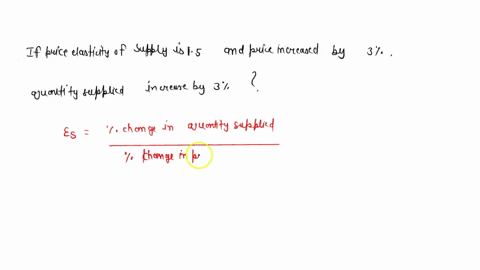 If price elasticity of supply is 1.5 and price increased by 3%.
quantity supplied increase by 3% ?
εs = % change in quantity supplied
% change in p